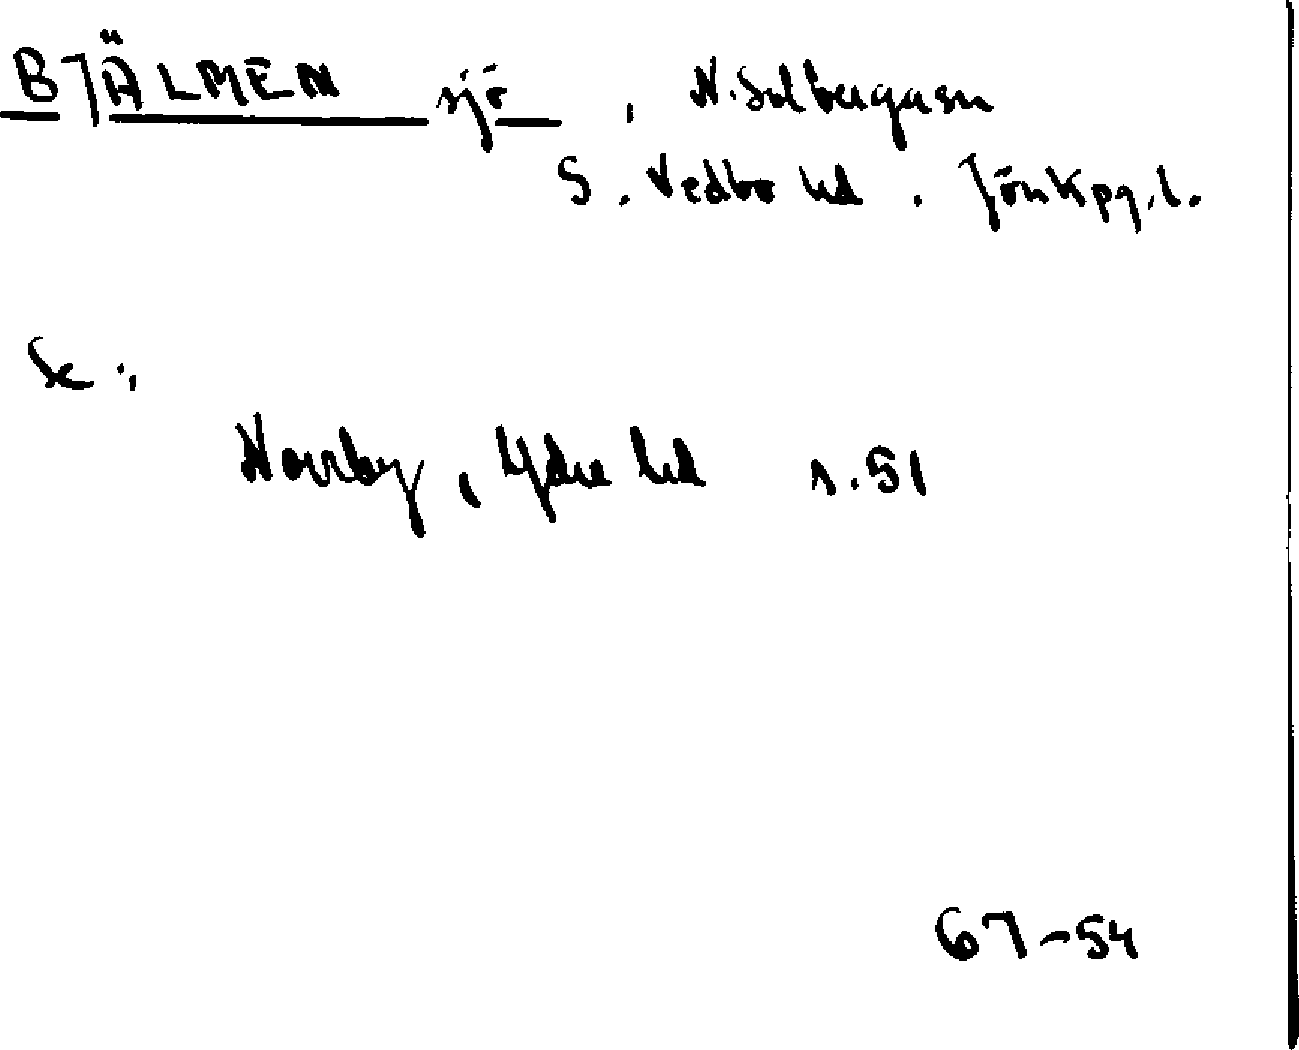 BJÄLMEN sjö, N. Solbergasn
S. Vedbo hd. Jönkpg. l.
Se:
Norrby, Ydre hd s. 51
67-54